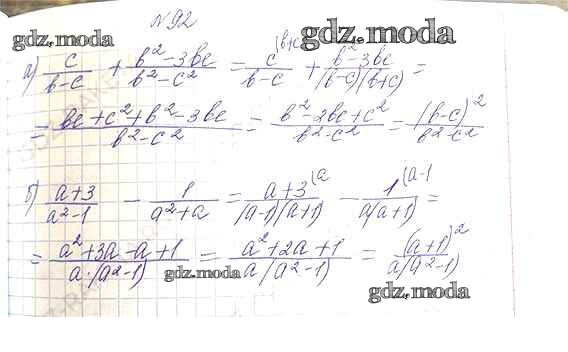 №92
gdz.moda
gdz.moda
а) c/(b-c) + (b²-3bc)/(b²-c²) = c^(b+c/(b-c) + (b²-3bc)/((b-c)(b+c)) =
= (bc+c²+b²-3bc)/(b²-c²) = (b²-2bc+c²)/(b²-c²) = (b-c)²/(b²-c²)
б) (a+3)/(a²-1) - 1/(a²+a) = (a+3)^(a/((a-1)(a+1)) - 1^(a-1/(a(a+1)) =
= (a²+3a-a+1)/(a·(a²-1)) = (a²+2a+1)/(a(a²-1)) = (a+1)²/(a(a²-1))
gdz.moda
gdz.moda